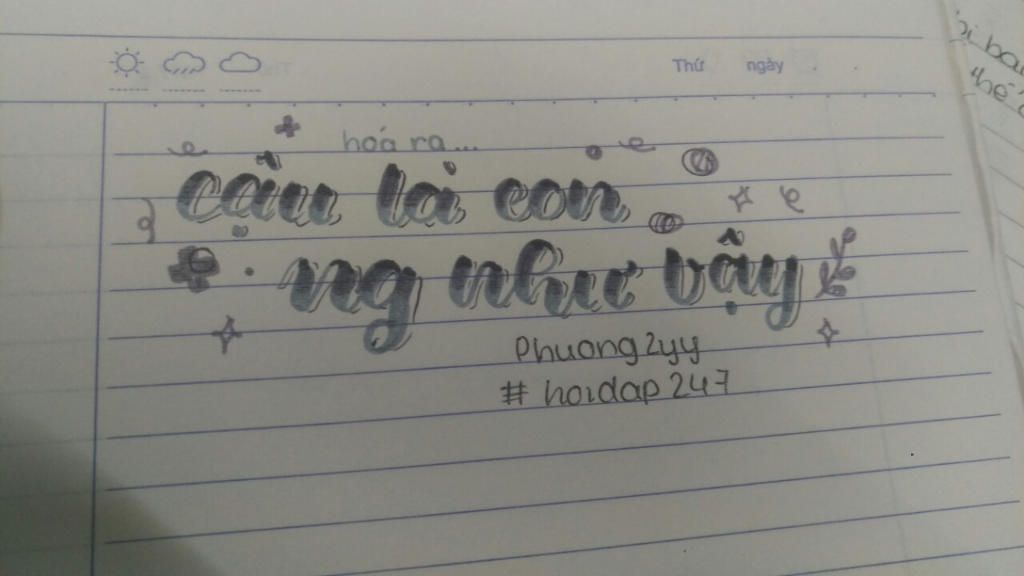 Thứ ngày
hoá ra...
cậu là con
ng như vậy
Phuong2yy
# hoidap247